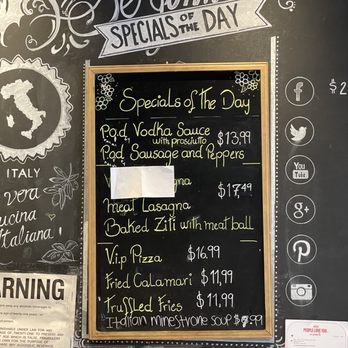 SPECIALS OF THE DAY
Specials of the Day
P.q.d. Vodka Sauce
with prosciutto $13,99
P.q.d. Sausage and Peppers
$17.49
Meat Lasagna
Baked Ziti with meat ball
V.i.p Pizza $16.99
Fried Calamari $11,99
Truffled Fries $11,99
Italian minestrone soup
ITALY
vera
cucina
Italiana!
WARNING
You
Tube
g+
$2
PEOPLE LOVE YOU